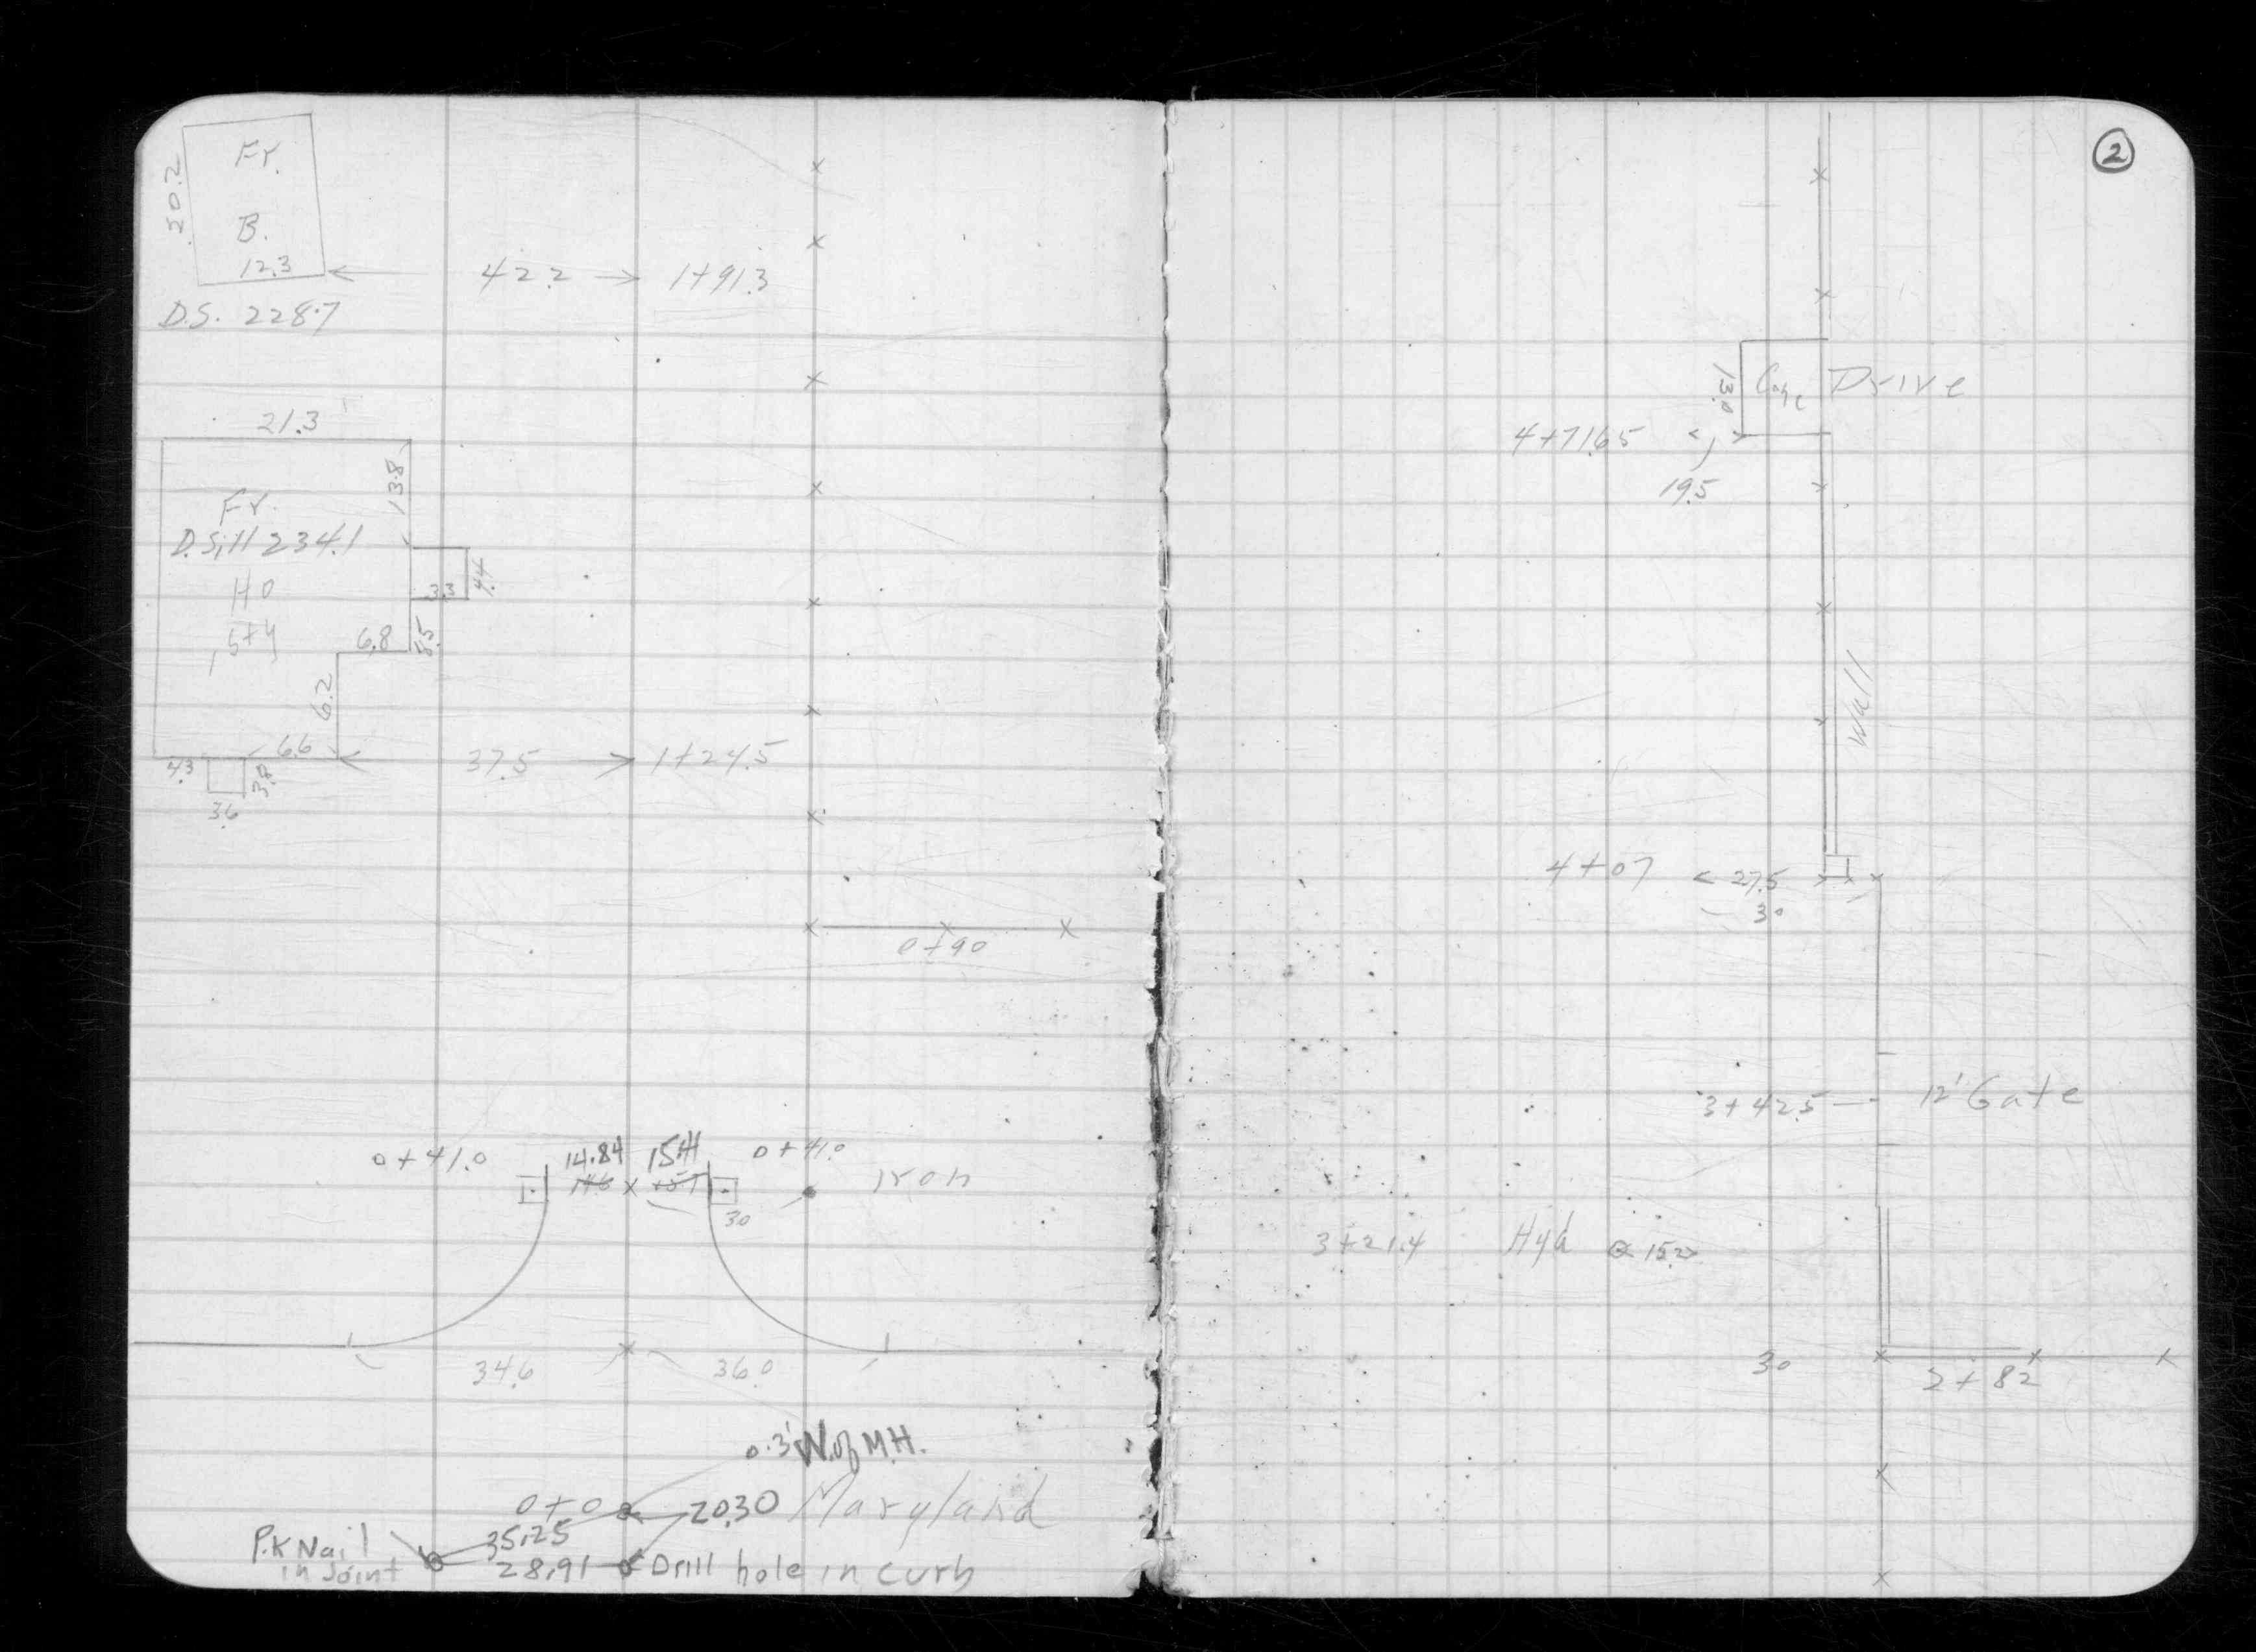 Fr.
20.2
B.
12.3
42.2 1+91.3
D.S. 228.7
21.3
13.8
Fr.
D.Sill 234.1
3.3 4.4
Ho
6.8 8.5
6.2
6.6
37.5 1+24.5
4.3 3.8
3.6
0+90
0+41.0 14.84 15.41 0+41.0
30
Iron
34.6 36.0
0.3' W. of M.H.
0+0 20.30 Maryland
35.25
P.K Nail
in Joint 28.91 Drill hole in curb
2
13.0 Conc Drive
4+71.65
19.5
Wall
4+07 27.5
30
3+42.5 12' Gate
3+21.4 Hyd 15.2
30 2+82